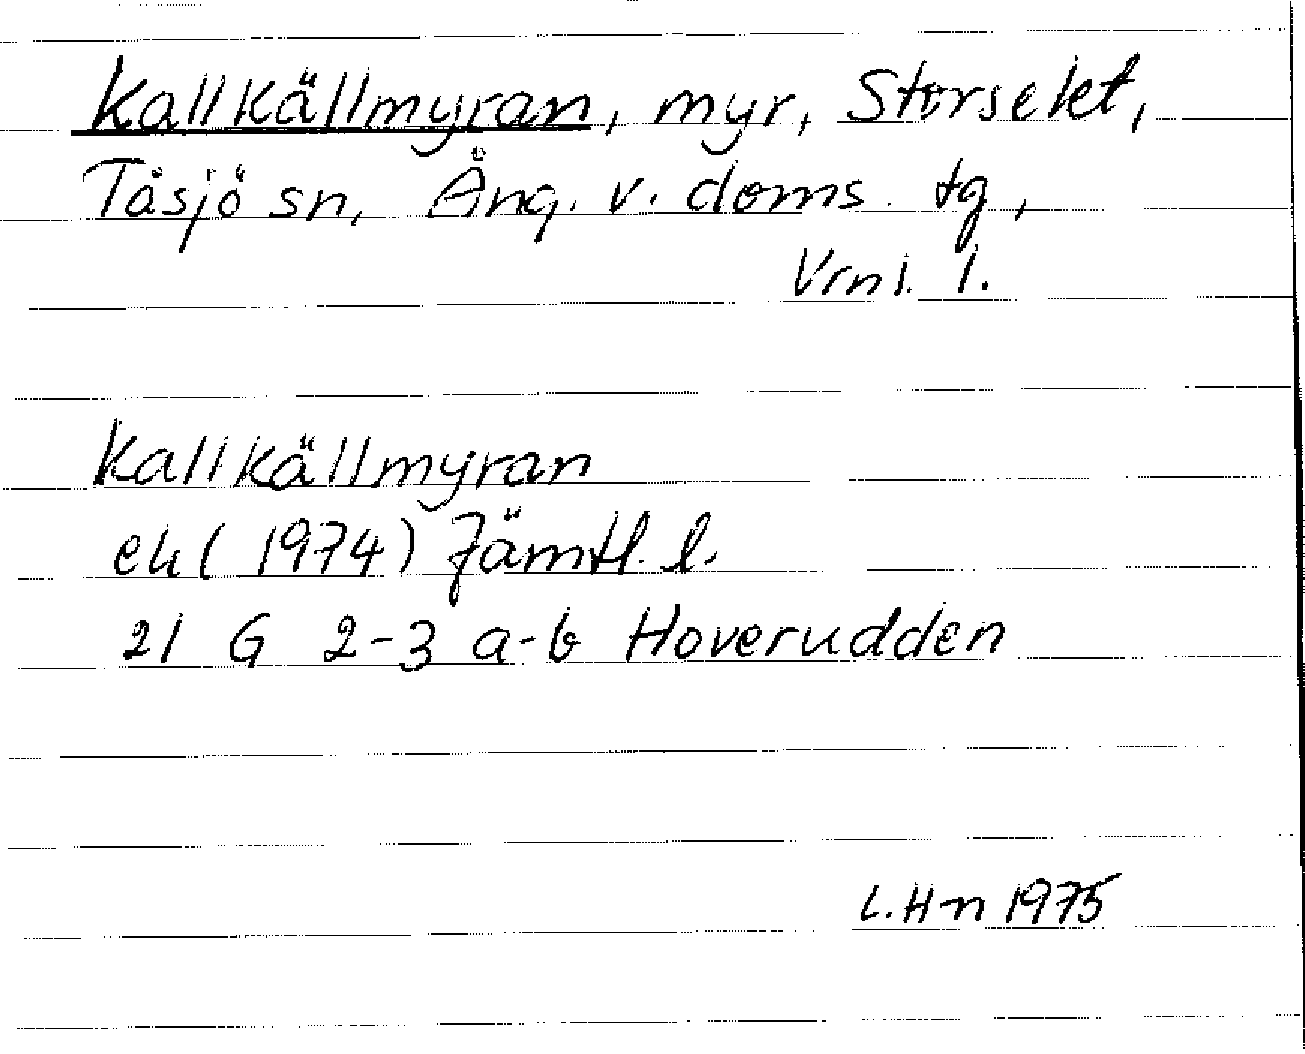 Kallkällmyran, myr, Storselet,
Tåsjö sn, Ång. v. doms. tg,
Vrnl. l.
Kallkällmyran
ek (1974) Jämtl. l.
21 G 2-3 a-b Hoverudden
L. Hn 1975